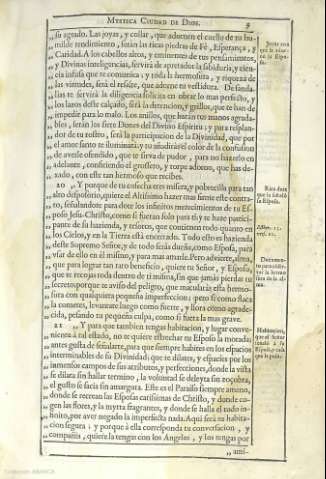 MYSTICA CIUDAD DE DIOS.
su agrado. Las joyas, y collar, que adornen el cuello de tu hu-
milde rendimiento, serán las ricas piedras de Fè, Esperança, y
Caridad. A los cabellos altos, y eminentes de tus pensamientos,
y Divinas inteligencias, servirà de apretador la sabiduria, y cien-
cia infusa que te comunica; y toda la hermosura, y riqueza de
las virtudes, será el realce, que adorne tu vestidura. De sanda-
lias te servirà la diligencia solicita en obrar lo mas perfecto, y
los lazos deste calçado, será la detencion, y grillos, que te han de
impedir para lo malo. Los anillos, que haràn tus manos agrada-
bles, seràn los siete Dones del Divino Espiritu; y para resplan-
dor de tu rostro, serà la participacion de la Divinidad, que por
el amor santo te iluminarà; y tu añadiràs el color de la confusion
de averle ofendido, que te sirva de pudor, para no hazerlo en
adelante, confiriendo el grossero, y torpe adorno, que has de-
xado, con este tan hermoso que recibes.
20 Y porque de tu cosecha eres misera, y pobrecilla para tan
alto desposorio, quiere el Altissimo hazer mas firme este contra-
to, señalandote para dote los infinitos merecimientos de tu Es-
poso Jesu-Christo, como si fueran solo para ti; y te haze partici-
pante de su hazienda, y tesoros, que contienen todo quanto en
los Cielos, y en la Tierra està encerrado. Todo esto es hazienda
deste Supremo Señor, y de todo seràs dueña, como Esposa, para
usar de ello en èl mismo, y para mas amarle. Pero advierte, alma,
que para lograr tan raro beneficio, quiere tu Señor, y Esposo,
que te recojas toda dentro de ti misma, sin que jamàs pierdas tu
secreto; porque te aviso del peligro, que macularàs esta hermo-
sura con qualquiera pequeña imperfeccion; pero si como flaca
la cometes, levantate luego como fuerte, y llora como agrade-
cida, pesando tu pequeña culpa, como si fuera la mas grave.
21 Y para que tambien tengas habitacion, y lugar conve-
niente à tal estado, no te quiere estrechar tu Esposo la morada;
antes gusta de señalarte, para que siempre habites en los espacios
interminables de su Divinidad; que te dilates, y espacies por los
immensos campos de sus atributos, y perfecciones, donde la vista
se dilata sin hallar termino, la voluntad se deleyta sin zoçobra,
el gusto se sacia sin amargura. Este es el Paraiso siempre ameno,
donde se recrean las Esposas carissimas de Christo, y donde co-
gen las flores, y la myrra fragrantes, y donde se halla el todo in-
finito, por aver negado la imperfecta nada. Aqui serà tu habita-
cion segura; y porque à ella corresponda tu conversacion, y
compañia, quiere la tengas con los Angeles, y los tengas por
ami-